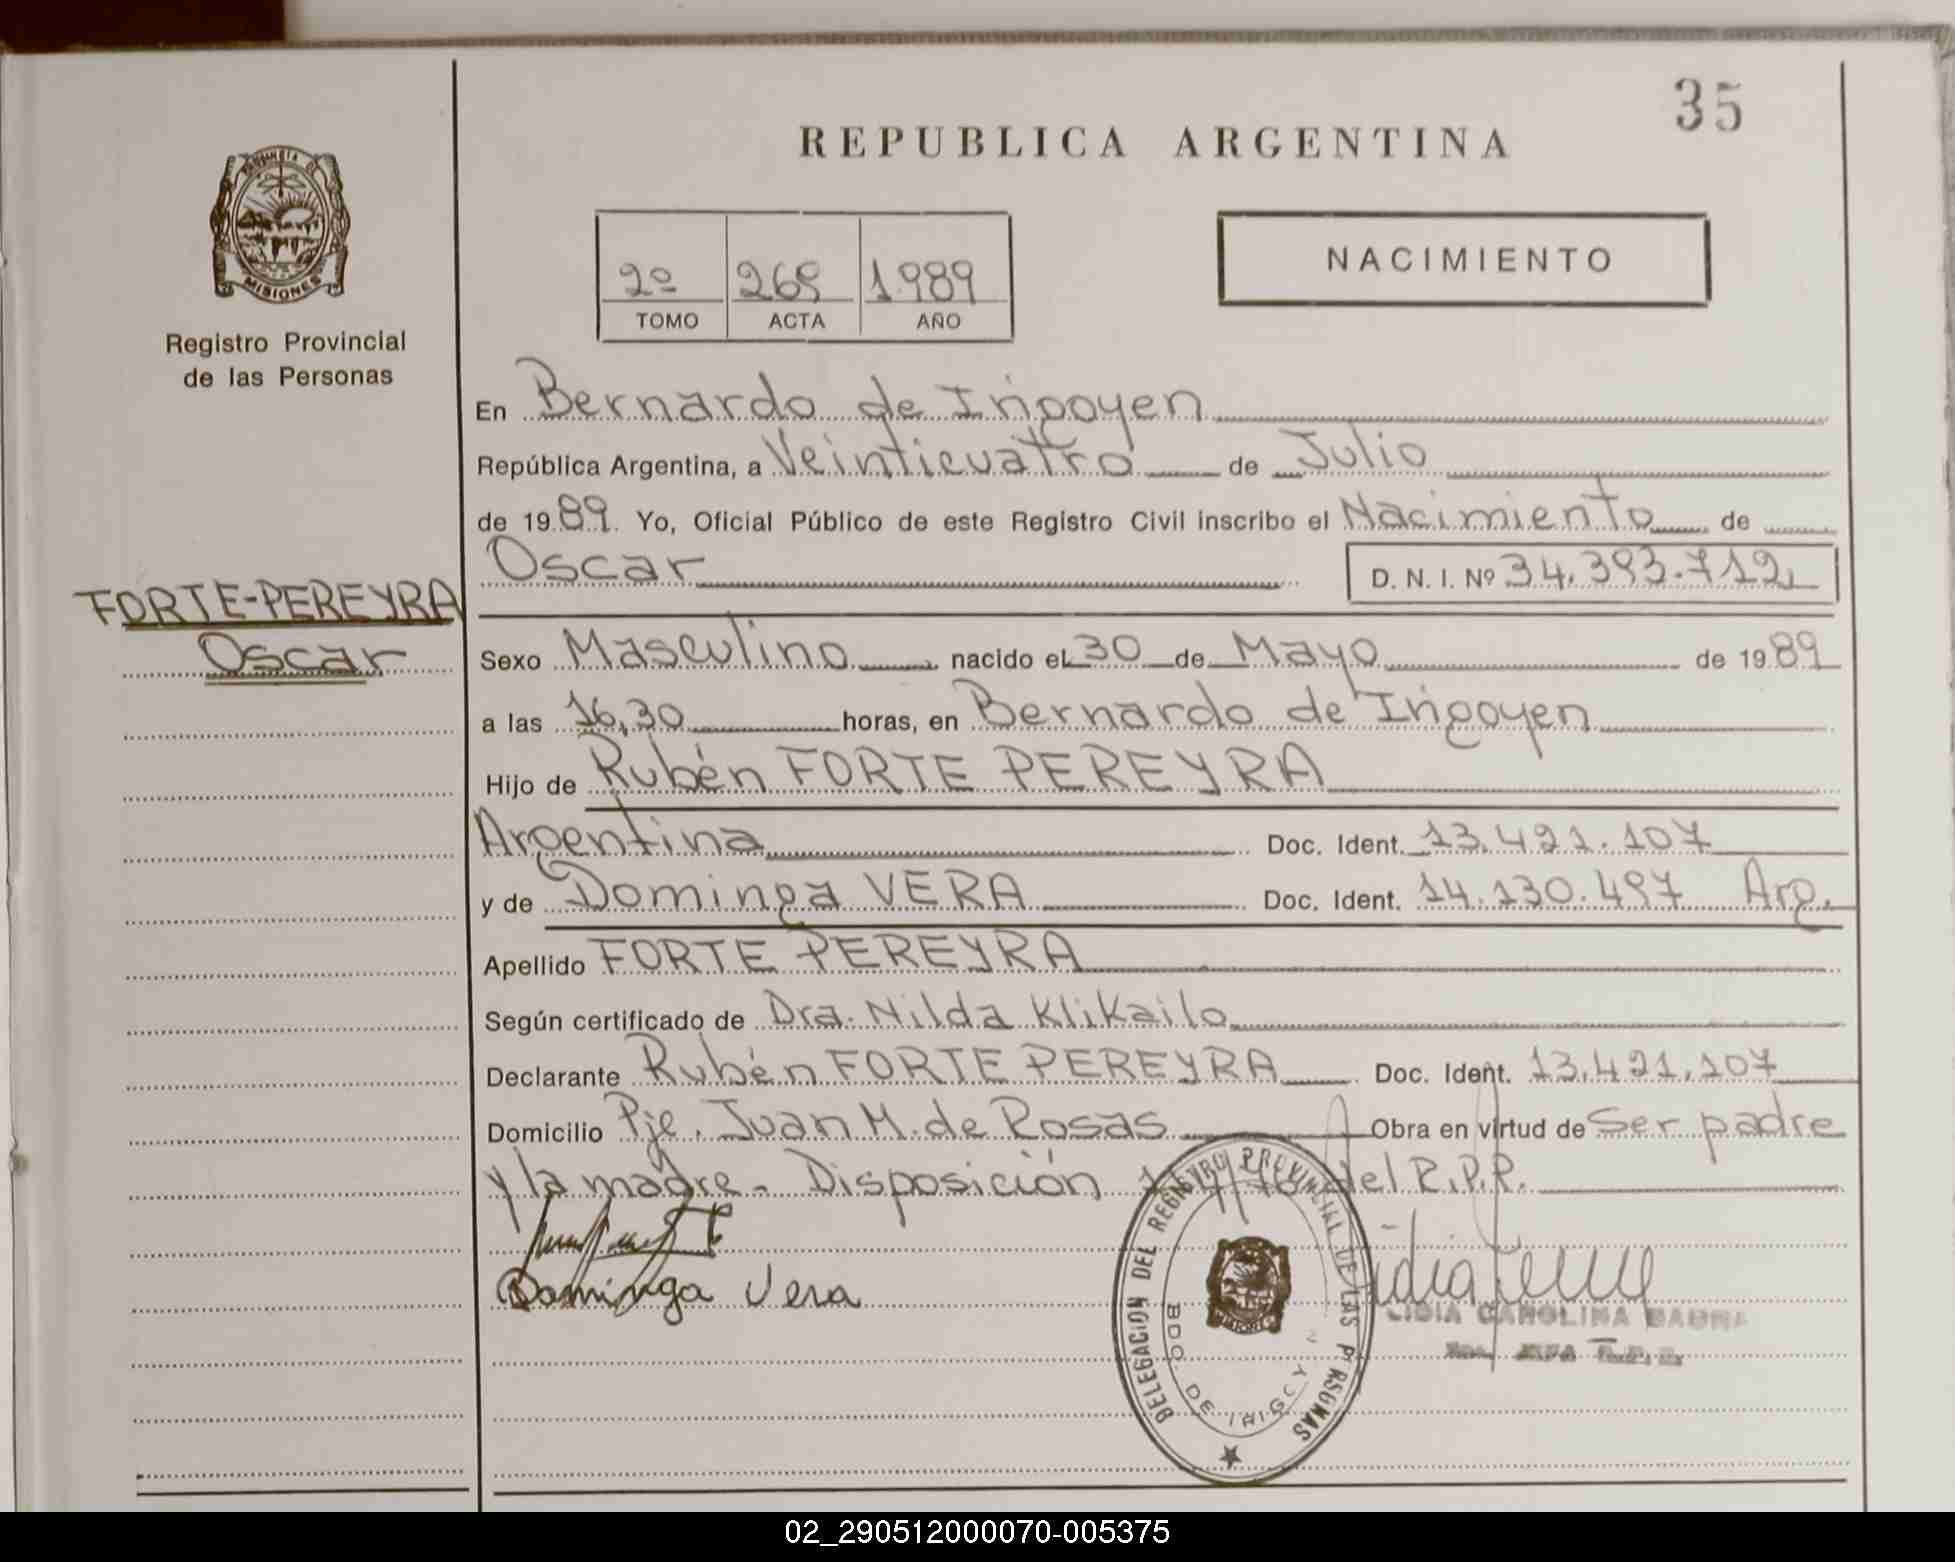 35
REPUBLICA ARGENTINA
PROVINCIA DE
MISIONES
Registro Provincial
de las Personas
2º 269 1.989
TOMO ACTA AÑO
NACIMIENTO
En Bernardo de Irigoyen
República Argentina, a Veinticuatro de Julio
de 1989. Yo, Oficial Público de este Registro Civil inscribo el Nacimiento de
Oscar D. N. I. Nº 34.393.712
FORTE-PEREYRA
Oscar
Sexo Masculino nacido el 30 de Mayo de 1989
a las 16,30 horas, en Bernardo de Irigoyen
Hijo de Rubén FORTE PEREYRA
Argentina Doc. Ident. 13.421.107
y de Dominga VERA Doc. Ident. 14.130.497 Arg.
Apellido FORTE PEREYRA
Según certificado de Dra. Nilda Klikailo
Declarante Rubén FORTE PEREYRA Doc. Ident. 13.421.107
Domicilio Pje. Juan M. de Rosas Obra en virtud de Ser padre
y la madre - Disposición del R.P.P.
Dominga Vera
DELEGACION DEL REGISTRO PROVINCIAL DE LAS PERSONAS
BDO. DE IRIGOY
LIDIA CAROLINA
02_290512000070-005375